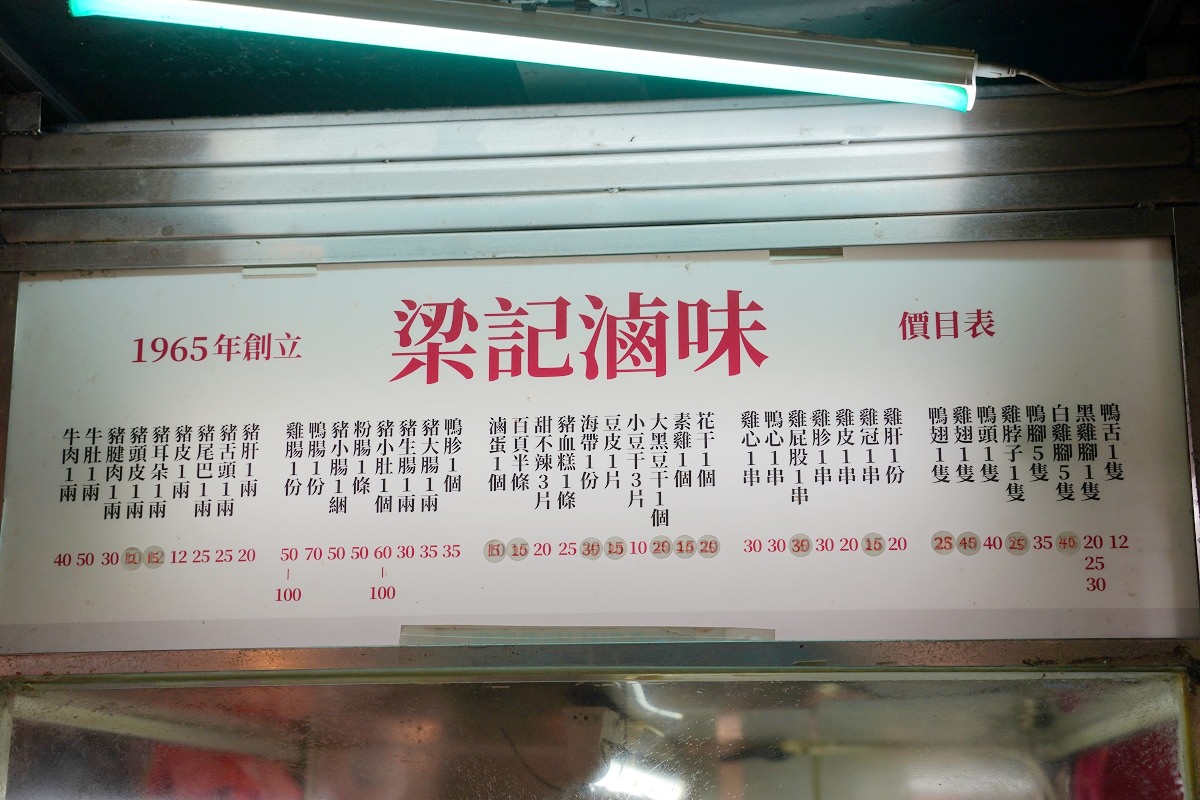 1965年創立
梁記滷味
價目表
鴨舌1隻 12
黑雞腳1隻 20 25 30
白雞腳5隻 40
鴨腳5隻 35
雞脖子1隻 25
鴨頭1隻 40
雞翅1隻
鴨翅1隻
雞肝1份 20
雞冠1串 15
雞皮1串 20
雞胗1串 30
雞屁股1串 30
鴨心1串 30
雞心1串 30
花干1個 20
素雞1個 15
大黑豆干1個 20
小豆干3片 10
豆皮1片 15
海帶1份 30
豬血糕1條 25
甜不辣3片 20
百頁半條 15
滷蛋1個
鴨胗1個 35
豬大腸1兩 35
豬生腸1兩 30
豬小肚1個 60|100
粉腸1條 50
豬小腸1綑 50
鴨腸1份 70
雞腸1份 50|100
豬肝1兩 20
豬舌頭1兩 25
豬尾巴1兩 25
豬皮1兩 12
豬耳朵1兩
豬頭皮1兩
豬腱肉1兩 30
牛肚1兩 50
牛肉1兩 40